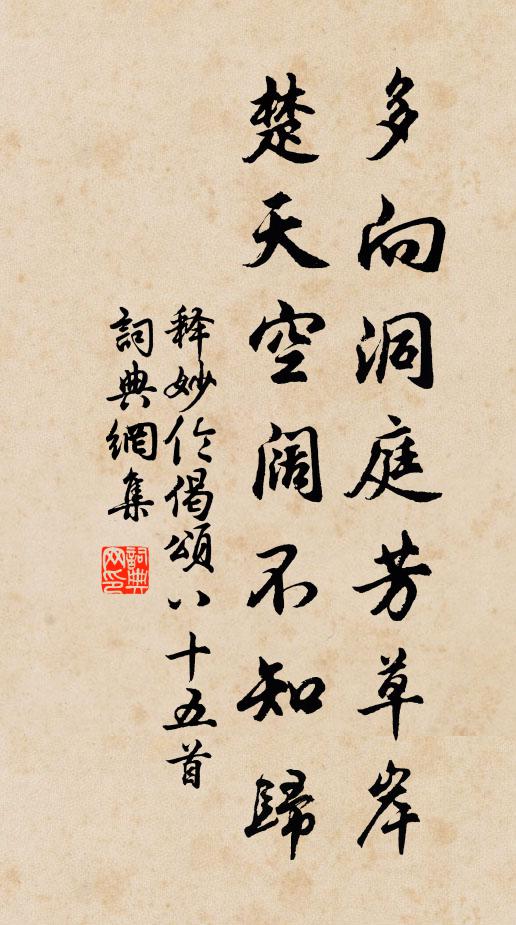 多向洞庭芳草岸
楚天空阔不知歸
释妙伦偈頌八十五首
詞典網集
詞典网印